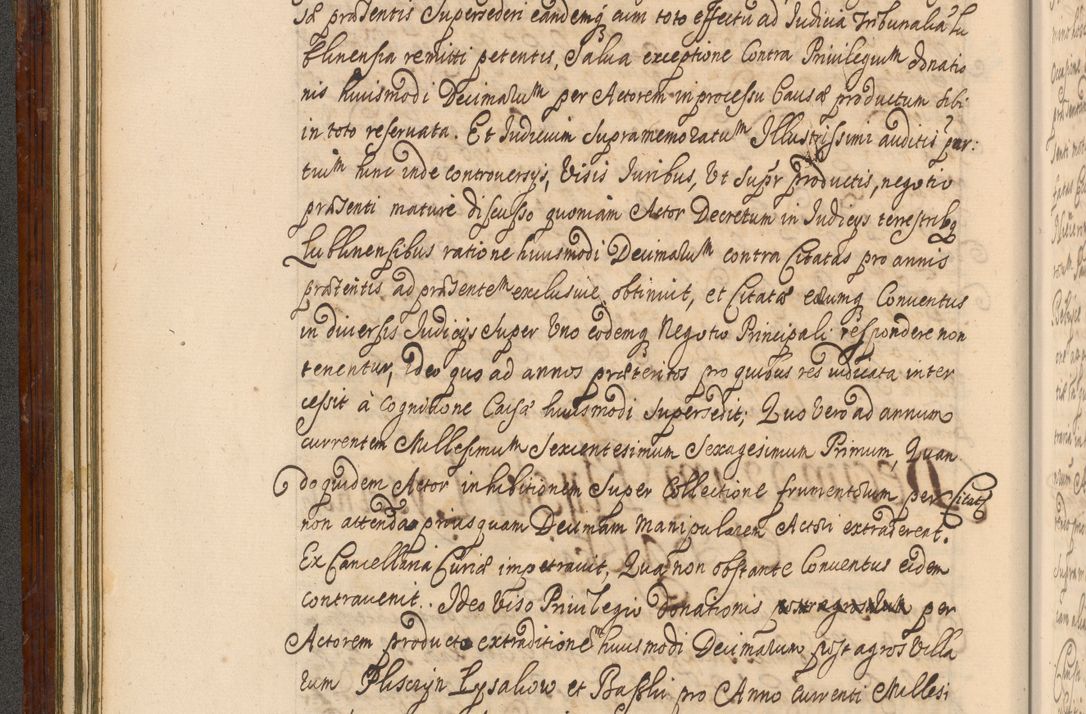 præsentis Supersederi eandemq̃ cum toto effectu ad Judicia Tribunalia Lu
blinensia remitti petentis, Salva exceptione Contra Privilegium donatio
nis huiusmodi Decimarum per Actorem in processu Causæ productum sibi
in toto reservata. Et Judicium Supramemoratum Illustrissimi auditis par:
tium hinc inde controversys, Visis Juribus, Ut Supr productis, negotio
præsenti mature discusso quoniam Actor Decretum in Judicys terrestribq
Lublinensibus ratione huiusmodi Decimarum contra Citatas pro annis
præteritis ad præsentem exclusive obtinuit, et Citatæ earumq Conventus
in diversis Judicys super Uno eodemq Negotio Principali respondere non
tenentur, Ideo quo ad annos præteritos pro quibus res iudicata inter
cessit à Cognitione Causæ huiusmodi Supersedit; Quo Vero ad annum
currentem Millesimum Sexcentesimum Sexagesimum Primum, Quan
do quidem Actor inhibitionem Super Collectione frumentorum per Citat
non attenda priusquam Decimam Manipularem Actori extraderent.
Ex Cancellaria Curiæ impetravit, Qua non obstante Conventus eidem
contravenit. Ideo Viso Privilegio donationis per
Actorem producto extraditionem huiusmodi Decimarum post agros Villa
rum Pliszczyn Lysakow et Baszki pro Anno Currenti Millesi